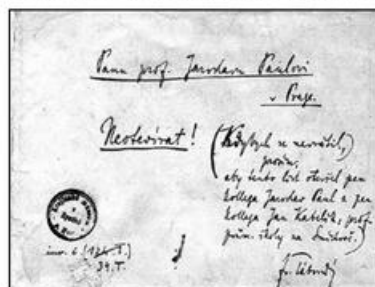 Panu prof. Jaroslavu Paulovi
v Praze.
Neotevírat!
(Kdybych se nevrátil,
prosím,
aby tento list otevřel pan
kollega Jaroslav Paul a pan
kollega Jan Kabelík, prof.
prům. školy na Smíchově.)
inv. č. (
39. T.
Fr. Táborský